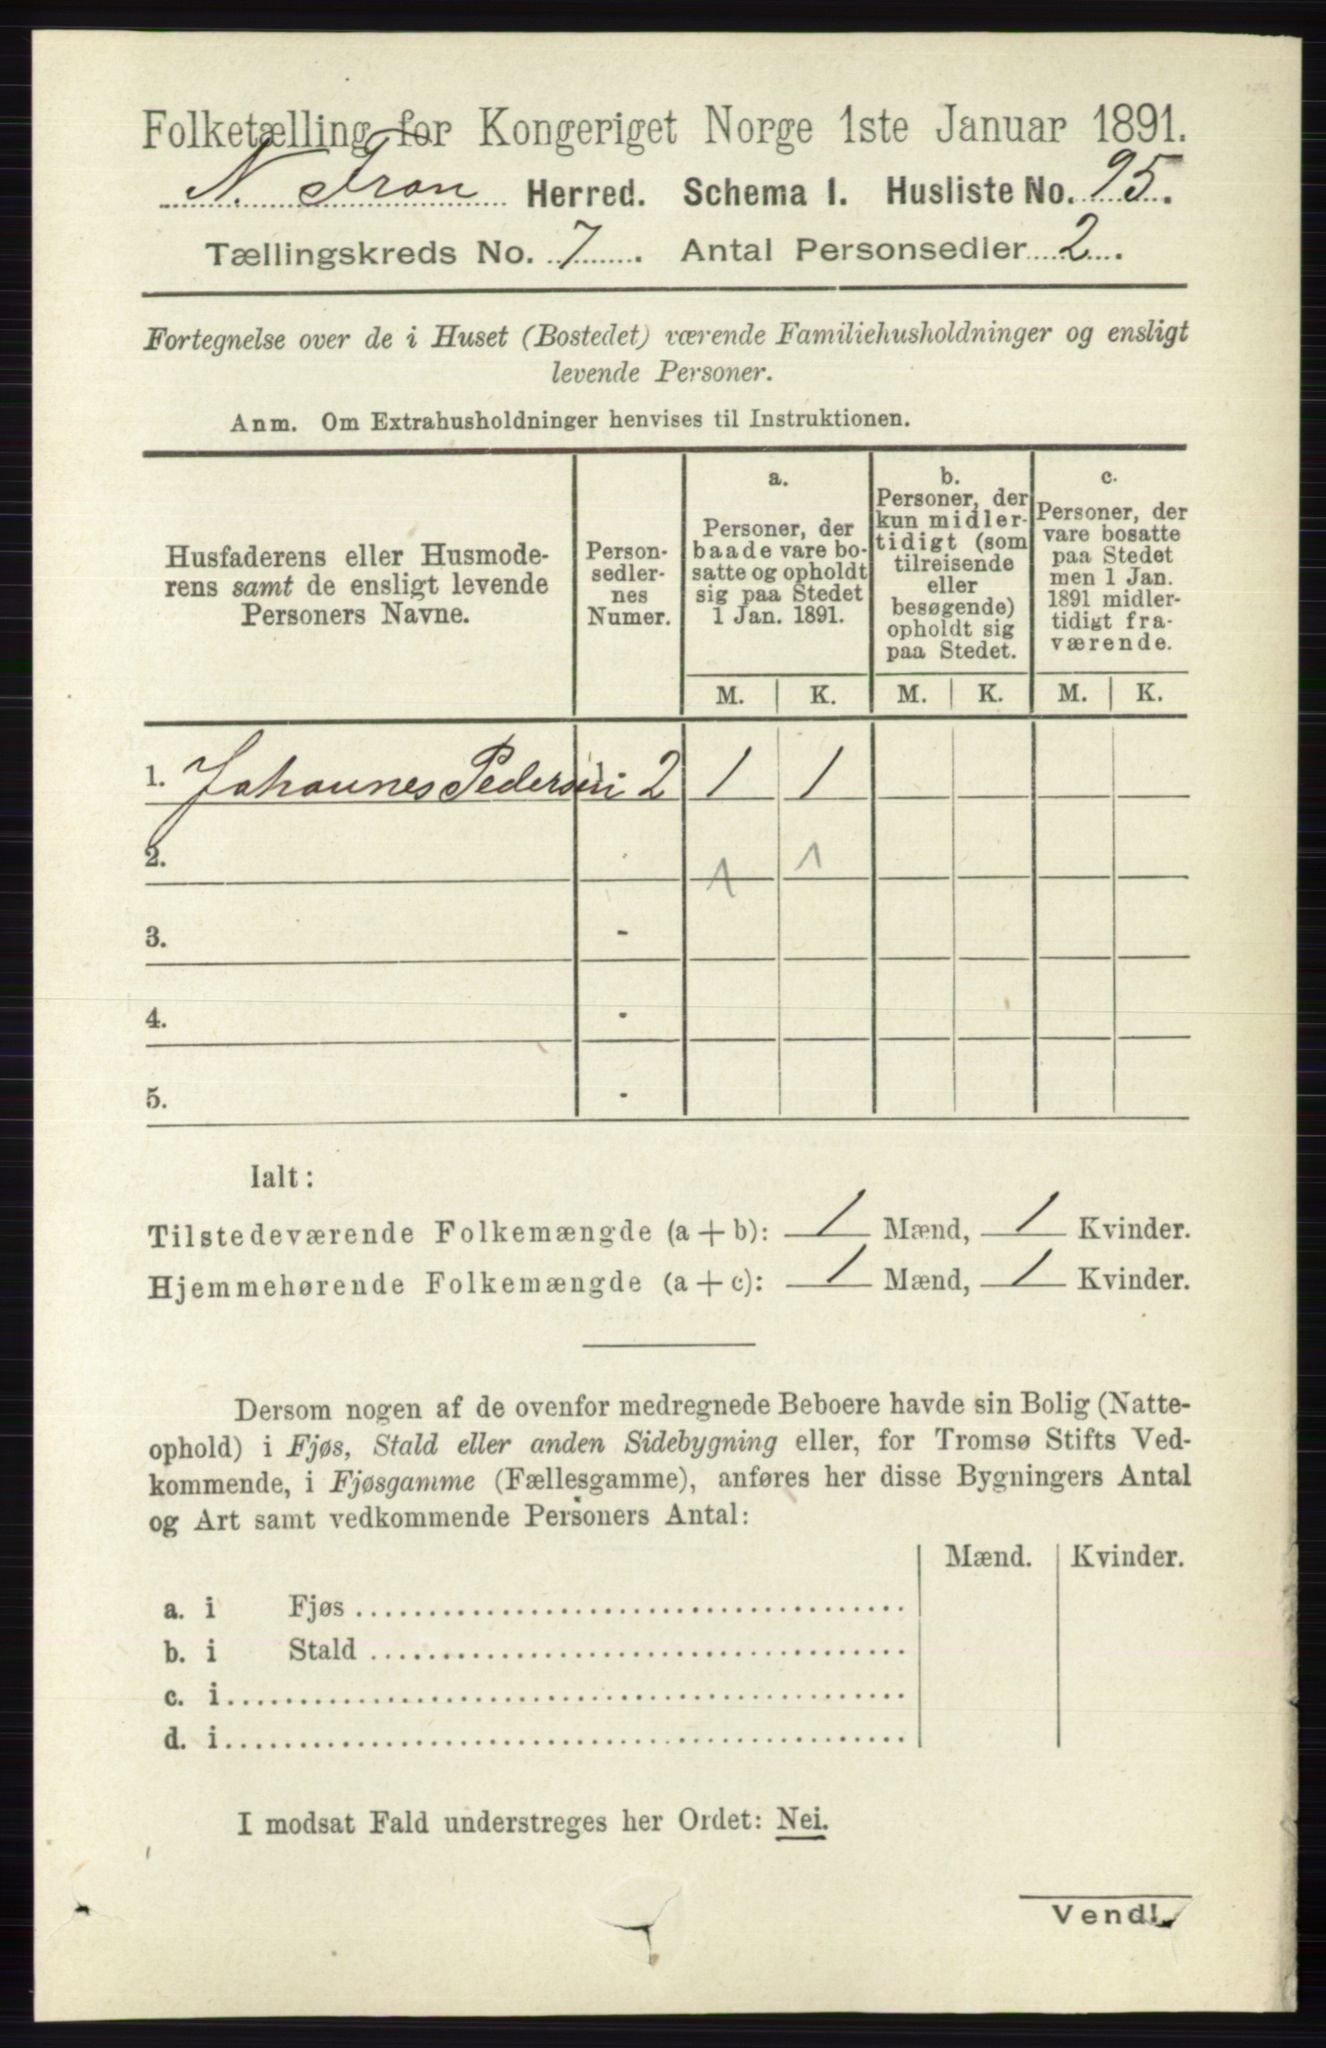 Folketælling for Kongeriget Norge 1ste Januar 1891.
N. Fron Herred. Schema I. Husliste No. 95.
Tællingskreds No. 7. Antal Personsedler 2.
Fortegnelse over de i Huset (Bostedet) værende Familiehusholdninger og ensligt
levende Personer.
Anm. Om Extrahusholdninger henvises til Instruktionen.
Husfaderens eller Husmode-
rens samt de ensligt levende
Personers Navne.
Person-
sedler-
nes
Numer.
a.
Personer, der
baade vare bo-
satte og opholdt
sig paa Stedet
1 Jan. 1891.
b.
Personer, der
kun midler-
tidigt (som
tilreisende
eller
besøgende)
opholdt sig
paa Stedet.
c.
Personer, der
vare bosatte
paa Stedet
men 1 Jan.
1891 midler-
tidigt fra-
værende.
M. K. M. K. M. K.
1. Johannes Pedersen 2 1 1
2. 1 1
3. -
4. -
5. -
Ialt:
Tilstedeværende Folkemængde (a + b): 1 Mænd, 1 Kvinder.
Hjemmehørende Folkemængde (a + c): 1 Mænd, 1 Kvinder.
Dersom nogen af de ovenfor medregnede Beboere havde sin Bolig (Natte-
ophold) i Fjøs, Stald eller anden Sidebygning eller, for Tromsø Stifts Ved-
kommende, i Fjøsgamme (Fællesgamme), anføres her disse Bygningers Antal
og Art samt vedkommende Personers Antal:
Mænd. Kvinder.
a. i Fjøs
b. i Stald
c. i
d. i
I modsat Fald understreges her Ordet: Nei.
Vend!